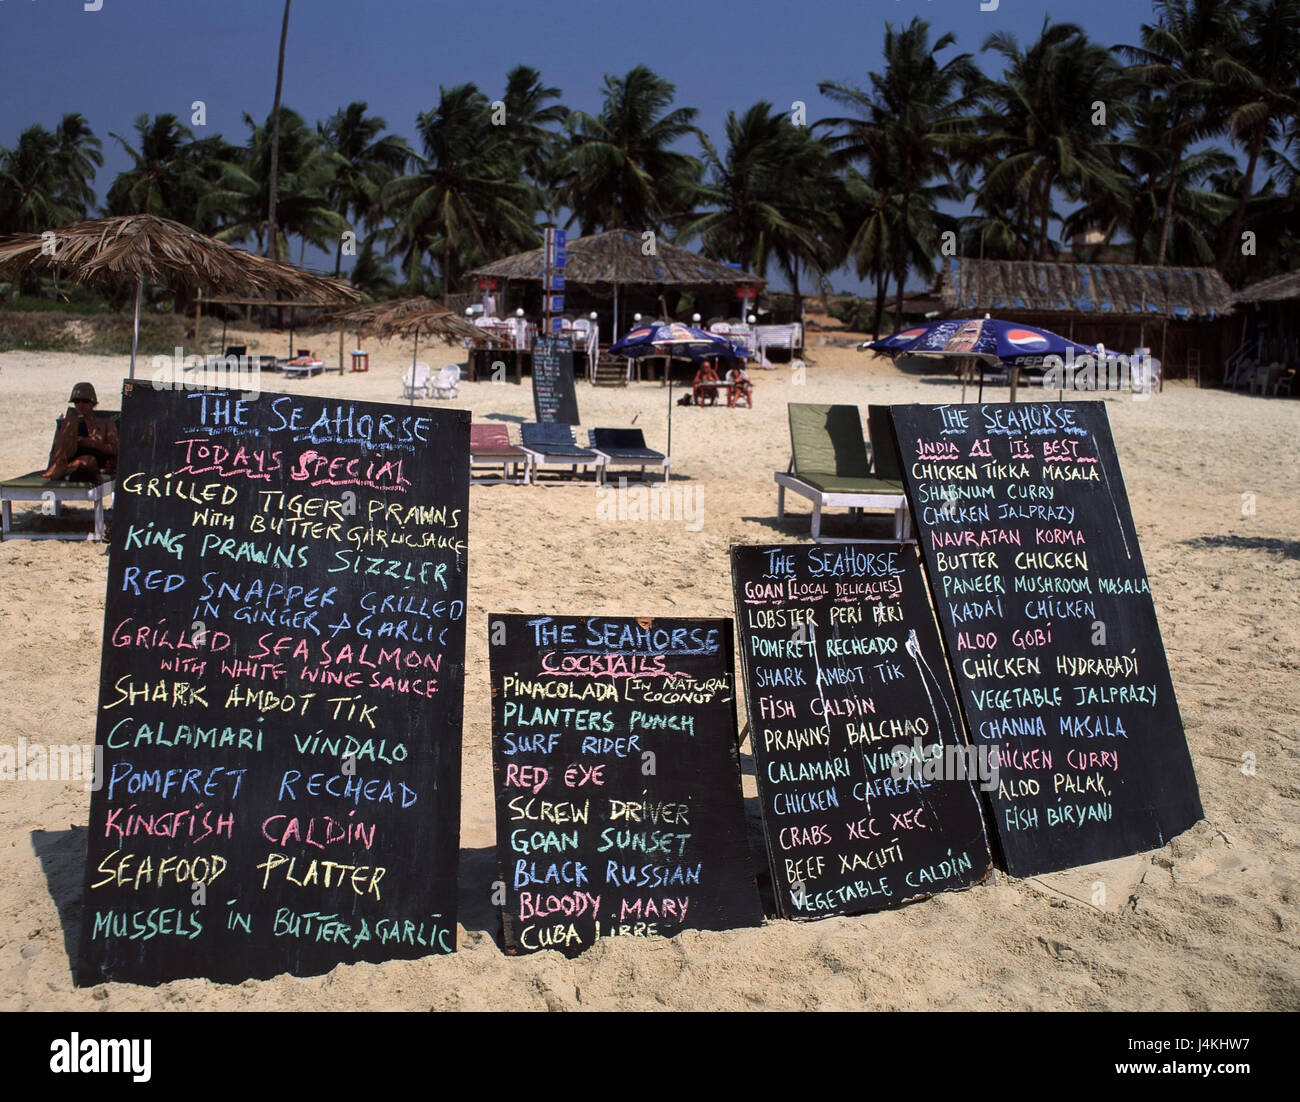 THE SEAHORSE
TODAYS SPECIAL
GRILLED TIGER PRAWNS
WITH BUTTER GARLIC SAUCE
KING PRAWNS SIZZLER
RED SNAPPER GRILLED
IN GINGER & GARLIC
GRILLED SEA SALMON
WITH WHITE WINE SAUCE
SHARK AMBOT TIK
CALAMARI VINDALO
POMFRET RECHEAD
KINGFISH CALDIN
SEAFOOD PLATTER
MUSSELS IN BUTTER & GARLIC
THE SEAHORSE
COCKTAILS
PINACOLADA [IN NATURAL
COCONUT
PLANTERS PUNCH
SURF RIDER
RED EYE
SCREW DRIVER
GOAN SUNSET
BLACK RUSSIAN
BLOODY MARY
CUBA LIBRE
THE SEAHORSE
GOAN [LOCAL DELICACIES]
LOBSTER PERI PERI
POMFRET RECHEADO
SHARK AMBOT TIK
FISH CALDIN
PRAWNS BALCHAO
CALAMARI VINDALO
CHICKEN CAFREAL
CRABS XEC XEC
BEEF XACUTI
VEGETABLE CALDIN
THE SEAHORSE
INDIA AT ITS BEST
CHICKEN TIKKA MASALA
SHABNUM CURRY
CHICKEN JALPRAZY
NAVRATAN KORMA
BUTTER CHICKEN
PANEER MUSHROOM MASALA
KADAI CHICKEN
ALOO GOBI
CHICKEN HYDRABADI
VEGETABLE JALPRAZY
CHANNA MASALA
CHICKEN CURRY
ALOO PALAK
FISH BIRYANI
PEPSI
a
alamy
Image ID: J4KHW7
www.alamy.com